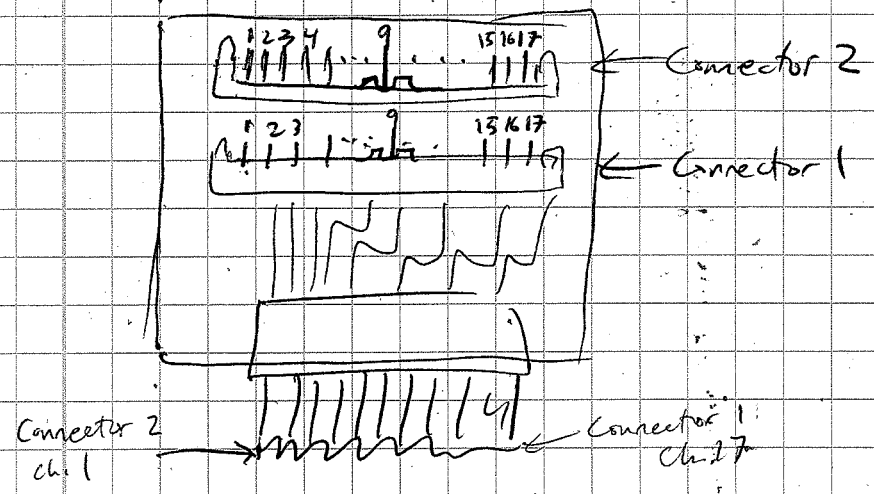 1 2 3 4 ... 9 . . . 15 16 17
Connector 2
1 2 3 ... 9 . 15 16 17
Connector 1
Connector 2
ch. 1
Connector 1
Ch. 17